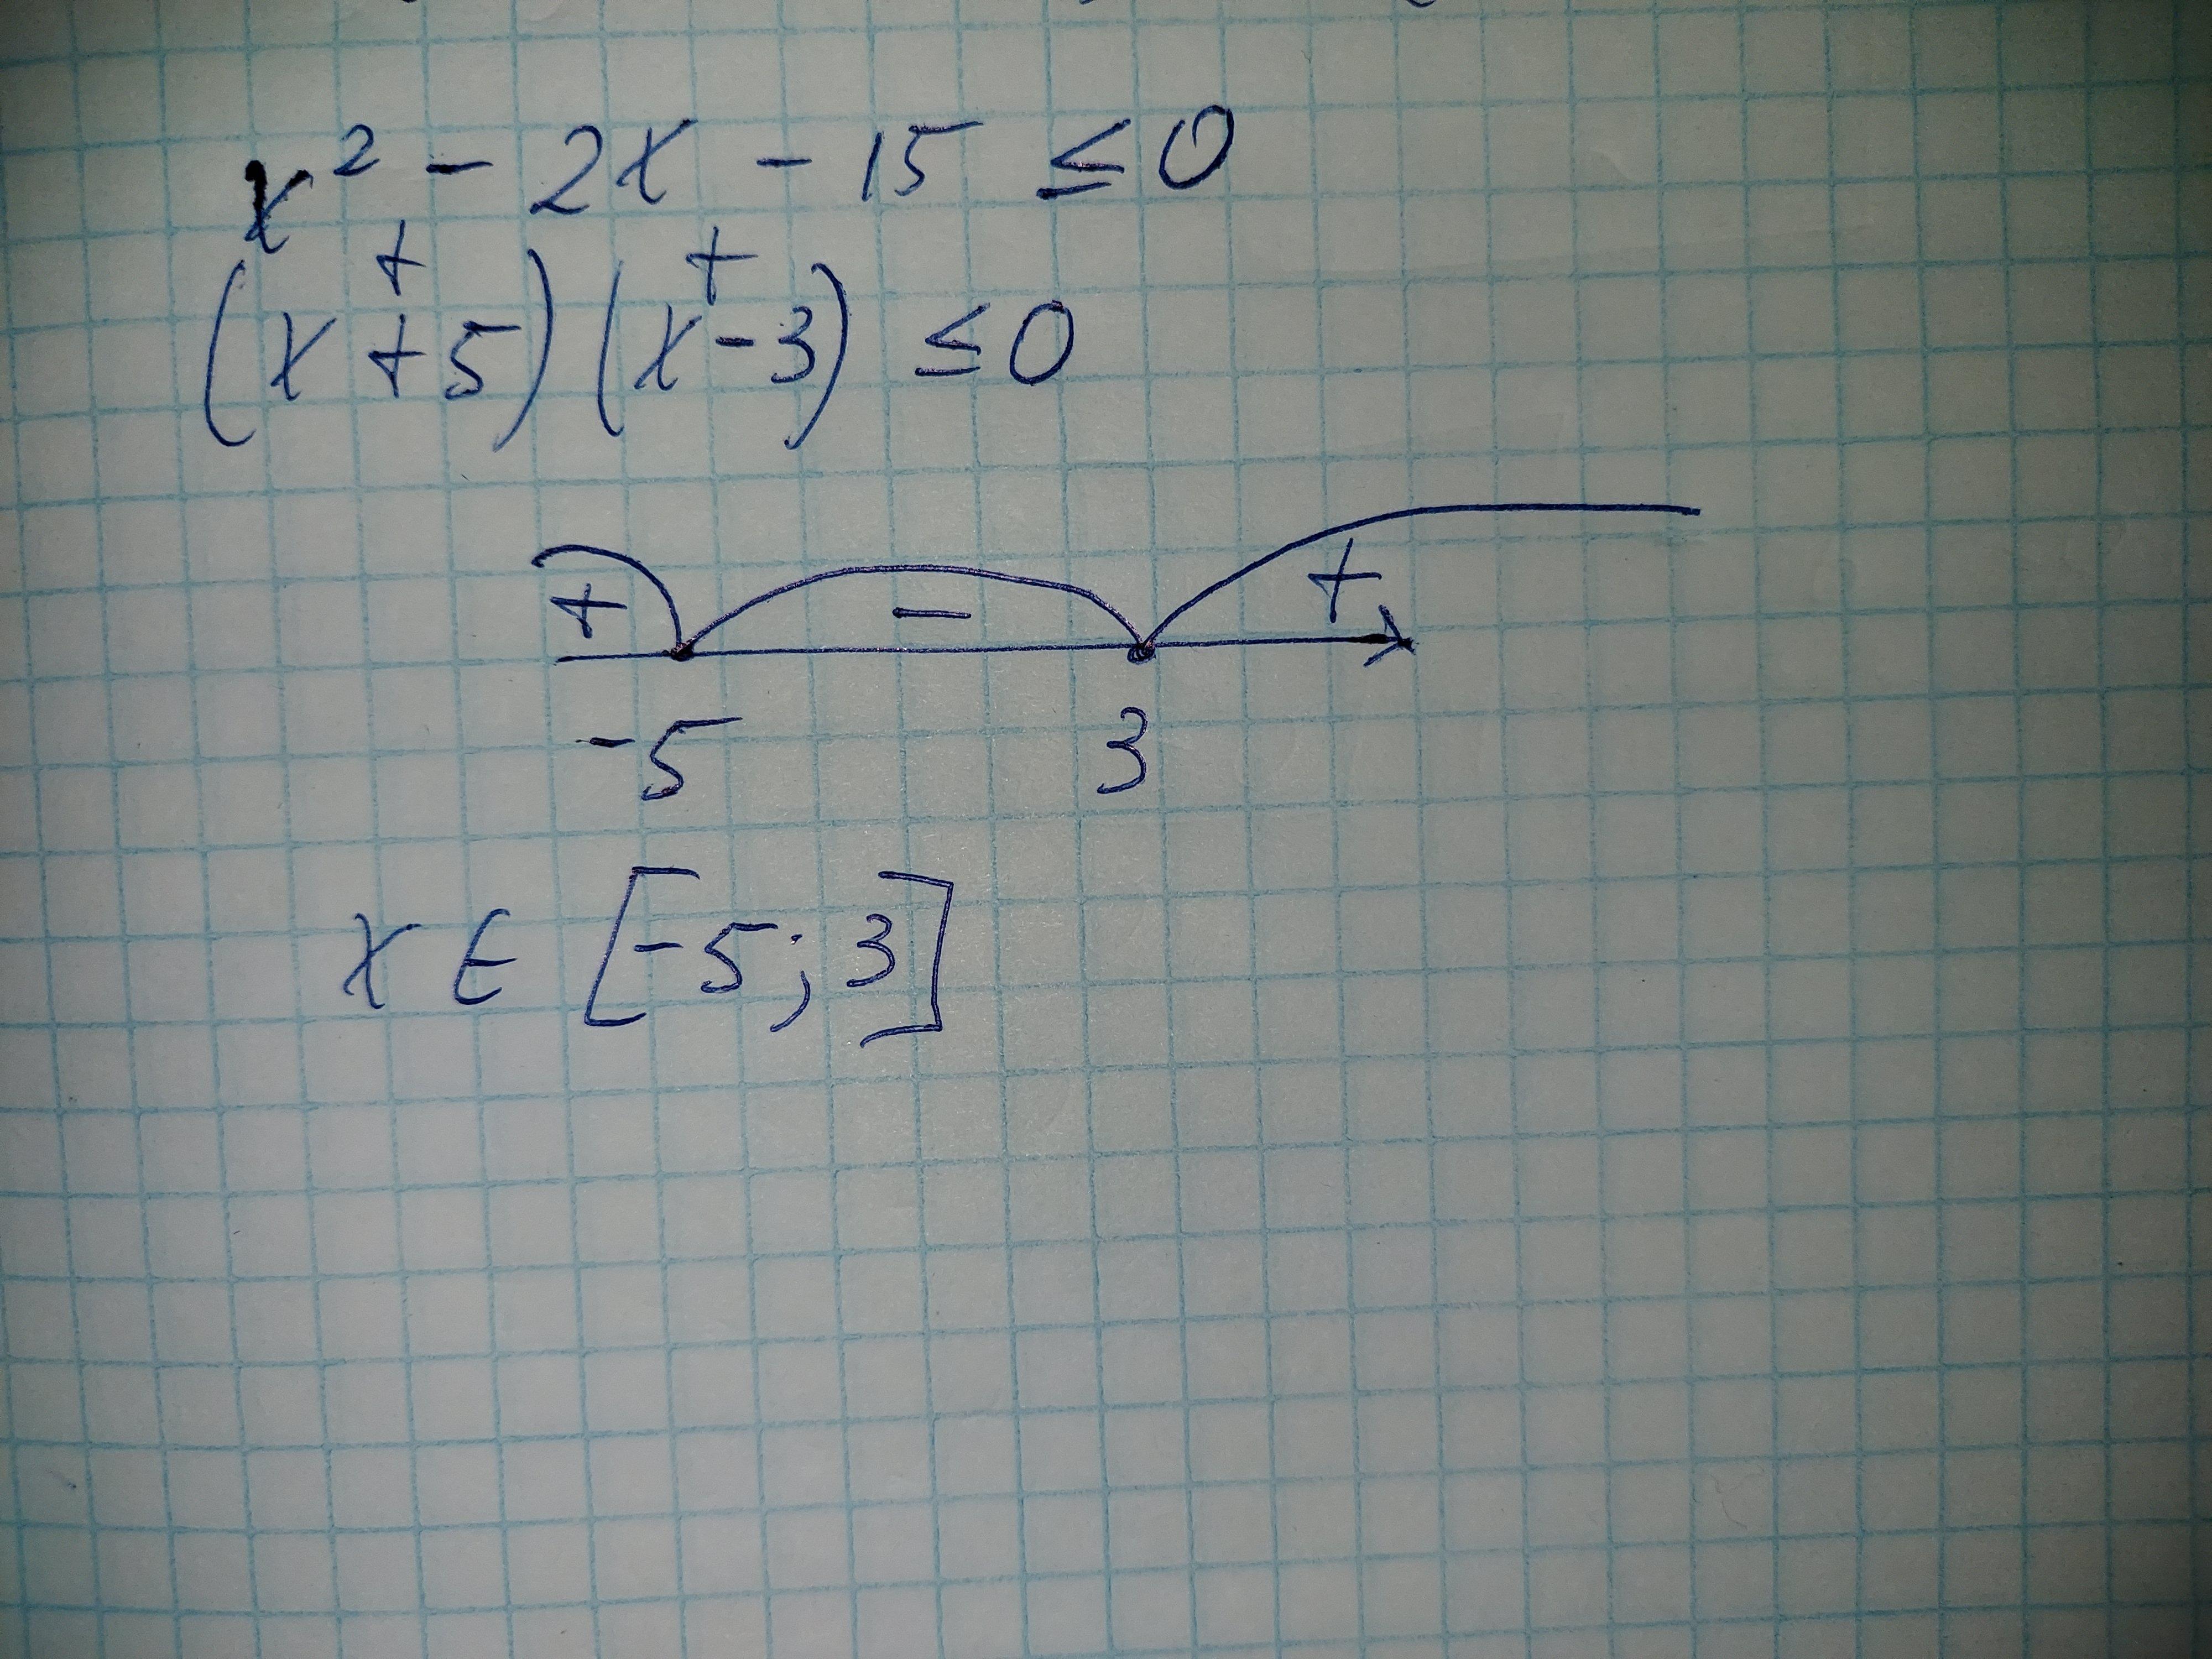 x² - 2x - 15 ≤ 0
+ +
(x + 5)(x - 3) ≤ 0
+ - +
-5 3
x ∈ [-5; 3]